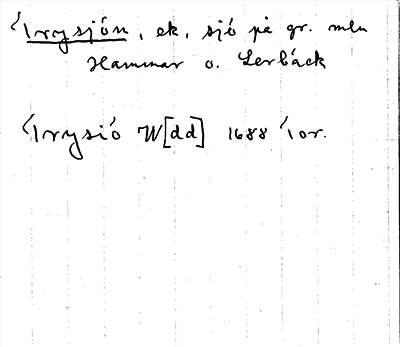 Trysjön, ek, sjö på gr. mln
Hammar o. Lerbäck
Trysiö W[dd] 1688 Tor.